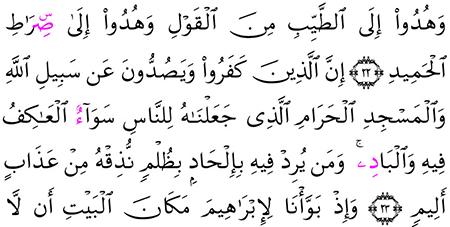 وَهُدُوٓا۟ إِلَى ٱلطَّيِّبِ مِنَ ٱلْقَوْلِ وَهُدُوٓا۟ إِلَىٰ صِۜرَٰطِ
ٱلْحَمِيدِ ٢٢ إِنَّ ٱلَّذِينَ كَفَرُوا۟ وَيَصُدُّونَ عَن سَبِيلِ ٱللَّهِ
وَٱلْمَسْجِدِ ٱلْحَرَامِ ٱلَّذِى جَعَلْنَٰهُ لِلنَّاسِ سَوَآءٌ ٱلْعَٰكِفُ
فِيهِ وَٱلْبَادِۦ ۚ وَمَن يُرِدْ فِيهِ بِإِلْحَادٍۭ بِظُلْمٍ نُّذِقْهُ مِنْ عَذَابٍ
أَلِيمٍ ٢٣ وَإِذْ بَوَّأْنَا لِإِبْرَٰهِيمَ مَكَانَ ٱلْبَيْتِ أَن لَّا